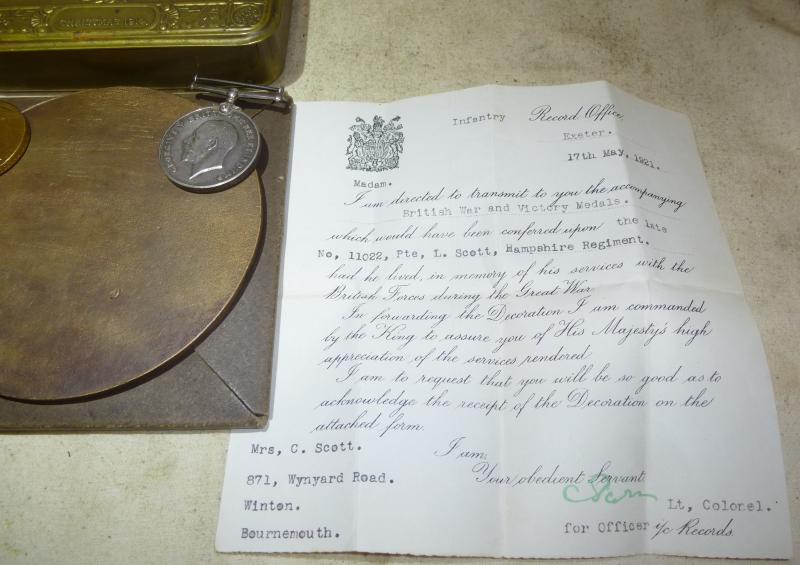 CHRISTMAS 1914
Infantry Record Office,
Exeter.
17th May, 1921.
Madam.
I am directed to transmit to you the accompanying
British War and Victory Medals.
which would have been conferred upon the late
No, 11022, Pte, L. Scott, Hampshire Regiment.
had he lived, in memory of his services with the
British Forces during the Great War.
In forwarding the Decoration I am commanded
by the King to assure you of His Majesty's high
appreciation of the services rendered
I am to request that you will be so good as to
acknowledge the receipt of the Decoration on the
attached form.
I am,
Your obedient Servant
Lt, Colonel.
for Officer i/c Records.
Mrs, C. Scott.
871, Wynyard Road.
Winton.
Bournemouth.